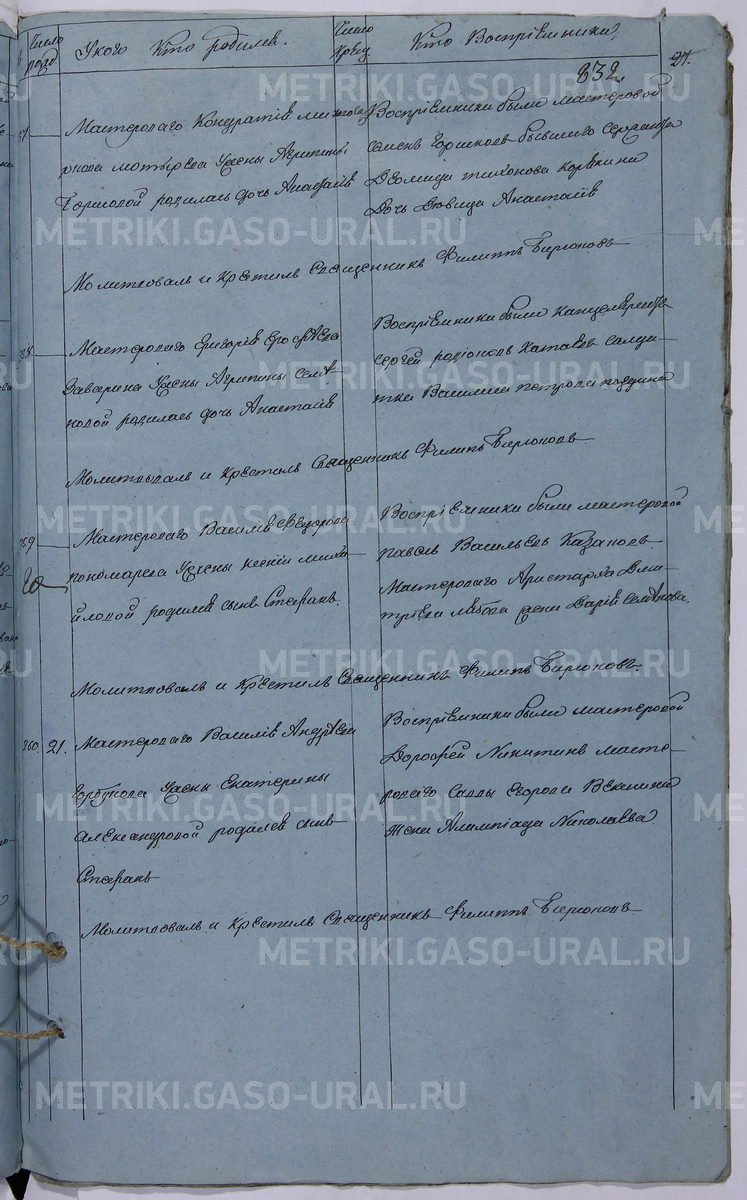 Число рожд
У кого Кто родился.
Число Крещ
Кто Воспрiемники,
832.
27.
57
Мастероваго Кондратiя
жены Агрипины
родилась дочь Анастасiя
Воспрiемники были мастеровой
Семенъ Горшковъ бывшаго Сержанта
Дiомида тихонова
Дочь Девица Анастасiя
Молитвовалъ и Крестилъ Священникъ Филиппъ Бирюковъ
58
Мастероваго Григорiя
Заверина жены Агрипины Семе-
новой родилась дочь Анастасiя
Воспрiемники были
Сергей родiоновъ салда-
тка Василиса петрова
Молитвовалъ и Крестилъ Священникъ Филипъ Бирюковъ
59
Мастероваго Василiя Федорова
пономарева жены ксенiи миха-
йловой родился сынъ Стефанъ
Воспрiемники были мастеровой
павелъ Васильевъ Казаковъ
Мастероваго Аристарха Дми-
трiева жена Дарiя Семенова
Молитвовалъ и Крестилъ Священникъ Филипъ Бирюковъ
260
21.
Мастероваго Василiя Андреева
Горбунова жены Екатерины
александровой родился сынъ
Стефанъ
Воспрiемники были мастеровой
Дорофей Никитинъ масте-
роваго Саввы егорова
Жена Алимпiада Николаева
Молитвовалъ и Крестилъ Священникъ Филиппъ Бирюковъ
METRIKI.GASO-URAL.RU